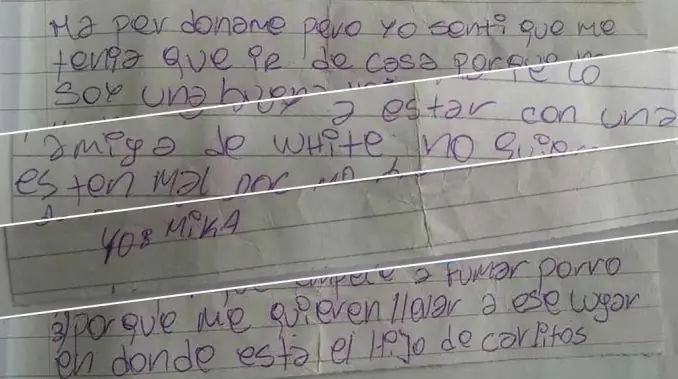 Ma perdoname pero yo senti que me
tenga que ir de casa porque
soy una buena
a estar con una
amiga de white no quie
esten mal por
Yo8 MiKA
empece a fumar porro
3) porque me quieren llevar a ese lugar
en donde esta el Hijo de carlitos